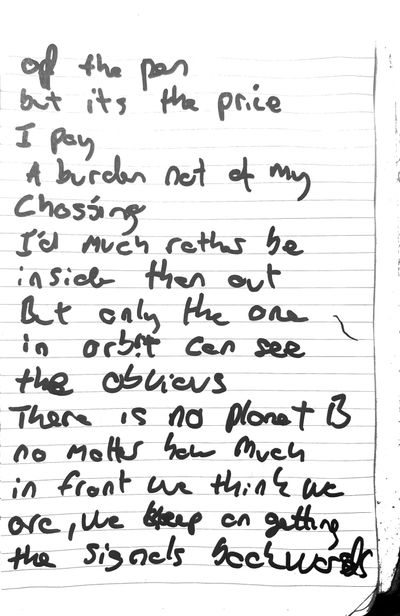 of the pen
but its the price
I pay
A burden not of my
Chossing
I'd much rather be
inside then out
But only the one
in orbit can see
the obvious
There is no planet B
no matter how much
in front we think we
are, we keep on getting
the signals backwards